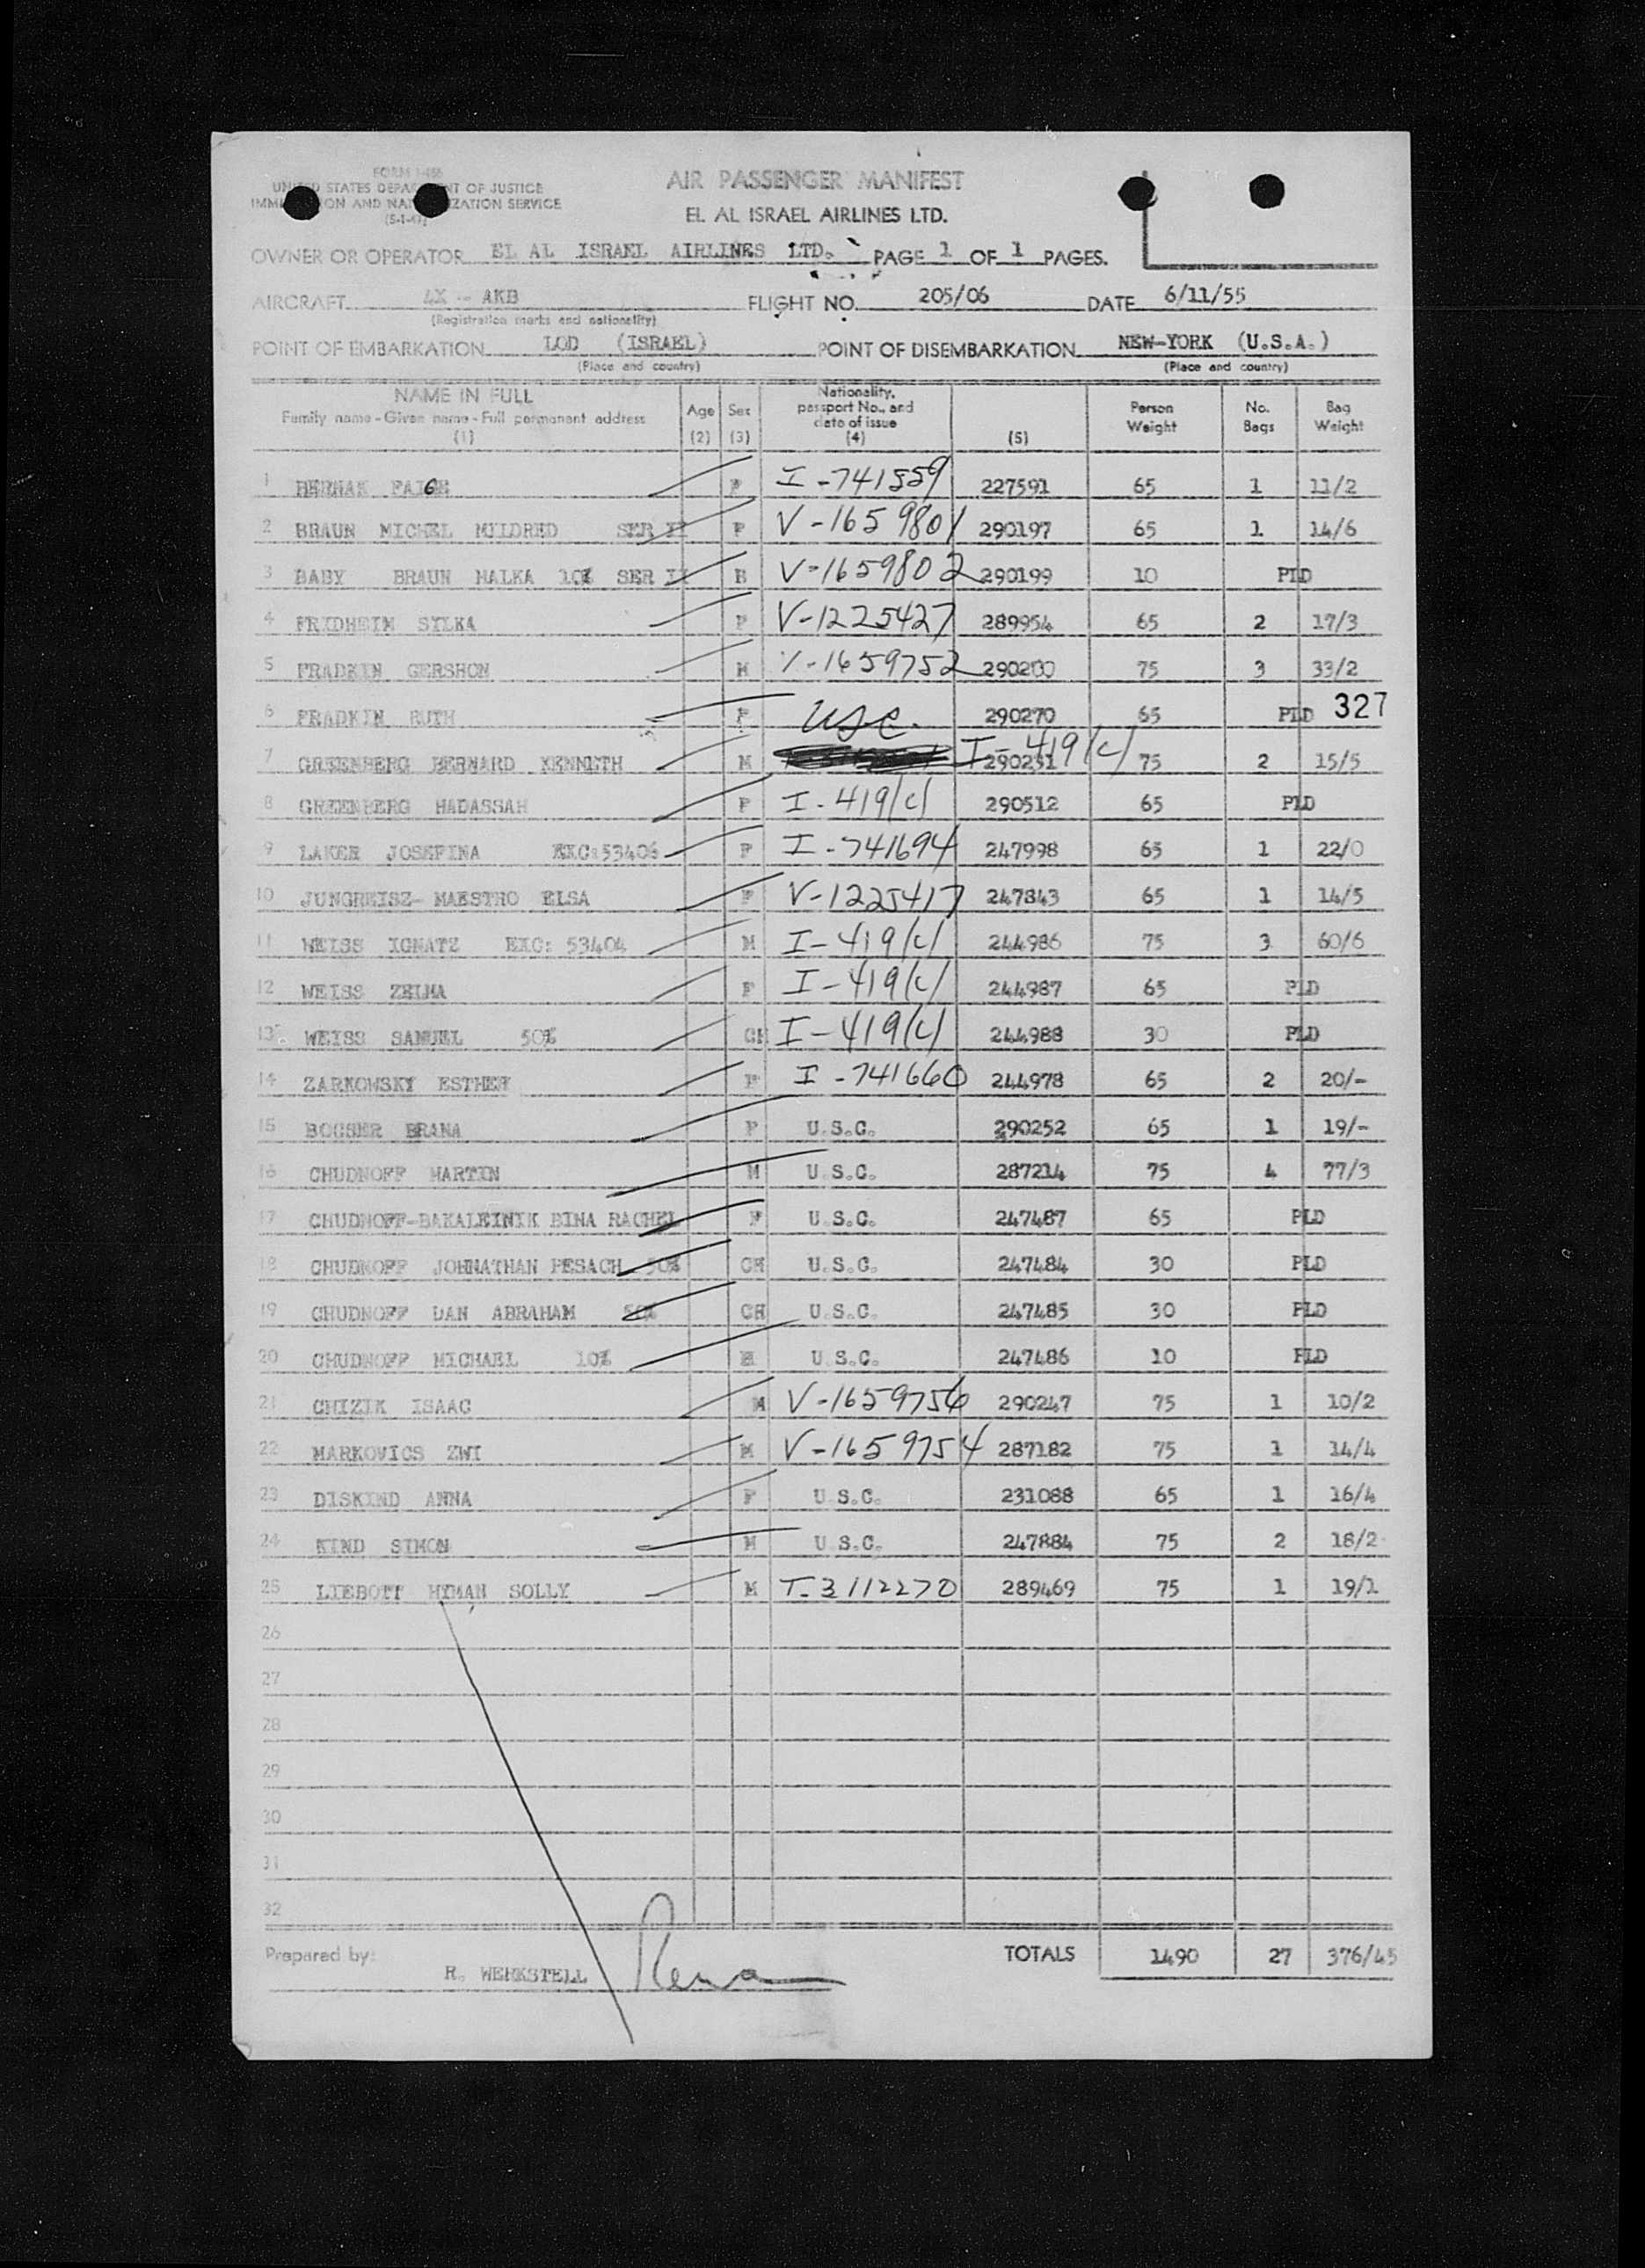 FORM I-466
UNITED STATES DEPARTMENT OF JUSTICE
IMMIGRATION AND NATURALIZATION SERVICE
AIR PASSENGER MANIFEST
EL AL ISRAEL AIRLINES LTD.
OWNER OR OPERATOR EL AL ISRAEL AIRLINES LTD. PAGE 1 OF 1 PAGES.
AIRCRAFT 4X - AKB FLIGHT NO. 205/06 DATE 6/11/55
(Registration marks and nationality)
POINT OF EMBARKATION LOD (ISRAEL) POINT OF DISEMBARKATION NEW-YORK (U.S.A.)
(Place and country) (Place and country)
NAME IN FULL
Family name - Given name - Full permanent address
(1)
Age (2)
Sex (3)
Nationality, passport No., and date of issue (4)
(5)
Person Weight
No. Bags
Bag Weight
1 BERMAN FAIGE F I-741559 227591 65 1 11/2
2 BRAUN MICHEL MILDRED SER II F V-1659801 290197 65 1 14/6
3 BABY BRAUN MALKA 10% SER II B V-1659802 290199 10 PLD
4 FRIDHEIM SYLKA F V-1225427 289954 65 2 17/3
5 FRADKIN GERSHON M V-1659752 290200 75 3 33/2
6 FRADKIN RUTH F USC. 290270 65 PLD 327
7 GREENBERG BERNARD KENNETH M I-419(c) 290251 75 2 15/5
8 GREENBERG HADASSAH F I-419(c) 290512 65 PLD
9 LAKER JOSEFINA EXC:53406 F I-741694 247998 65 1 22/0
10 JUNGREISZ- MAESTRO ELSA F V-1225417 247843 65 1 14/5
11 WEISS IGNATZ EXC: 53404 M I-419(c) 244986 75 3 60/6
12 WEISS ZELMA F I-419(c) 244987 65 PLD
13 WEISS SAMUEL 50% CH I-419(c) 244988 30 PLD
14 ZARKOWSKY ESTHER F I-741660 244978 65 2 20/-
15 BOGSER BRANA F U.S.C. 290252 65 1 19/-
16 CHUDNOFF MARTIN M U.S.C. 287214 75 4 77/3
17 CHUDNOFF-BAKALEINIK BINA RACHEL F U.S.C. 247487 65 PLD
18 CHUDNOFF JOHNATHAN PESACH 50% CH U.S.C. 247484 30 PLD
19 CHUDNOFF DAN ABRAHAM 50% CH U.S.C. 247485 30 PLD
20 CHUDNOFF MICHAEL 10% U.S.C. 247486 10 PLD
21 CHIZIK ISAAC M V-1659756 290247 75 1 10/2
22 MARKOVICS ZWI M V-1659754 287182 75 1 14/4
23 DISKIND ANNA F U.S.C. 231088 65 1 16/4
24 KIND SIMON M U.S.C. 247884 75 2 18/2
25 LIEBOTT HYMAN SOLLY M T-3112270 289469 75 1 19/1
26
27
28
29
30
31
32
Prepared by: R. WERKSTELL Rena TOTALS 1490 27 376/45